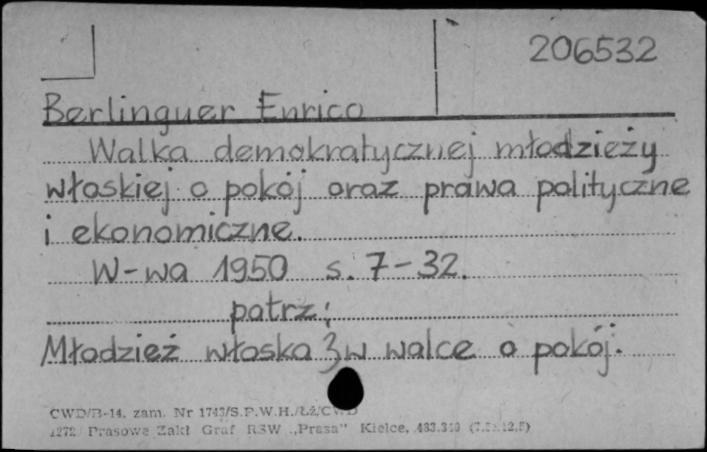 206532
Berlinguer Enrico
Walka demokratycznej młodzieży
włoskiej o pokój oraz prawa polityczne
i ekonomiczne.
W-wa 1950 s. 7-32.
patrz:
Młodzież włoska w walce o pokój.
CWD/B-14. zam. Nr 1743/S.P.W.H./ŁŻ/CWD
Prasowe Zakł Graf RSW „Prasa" Kielce,